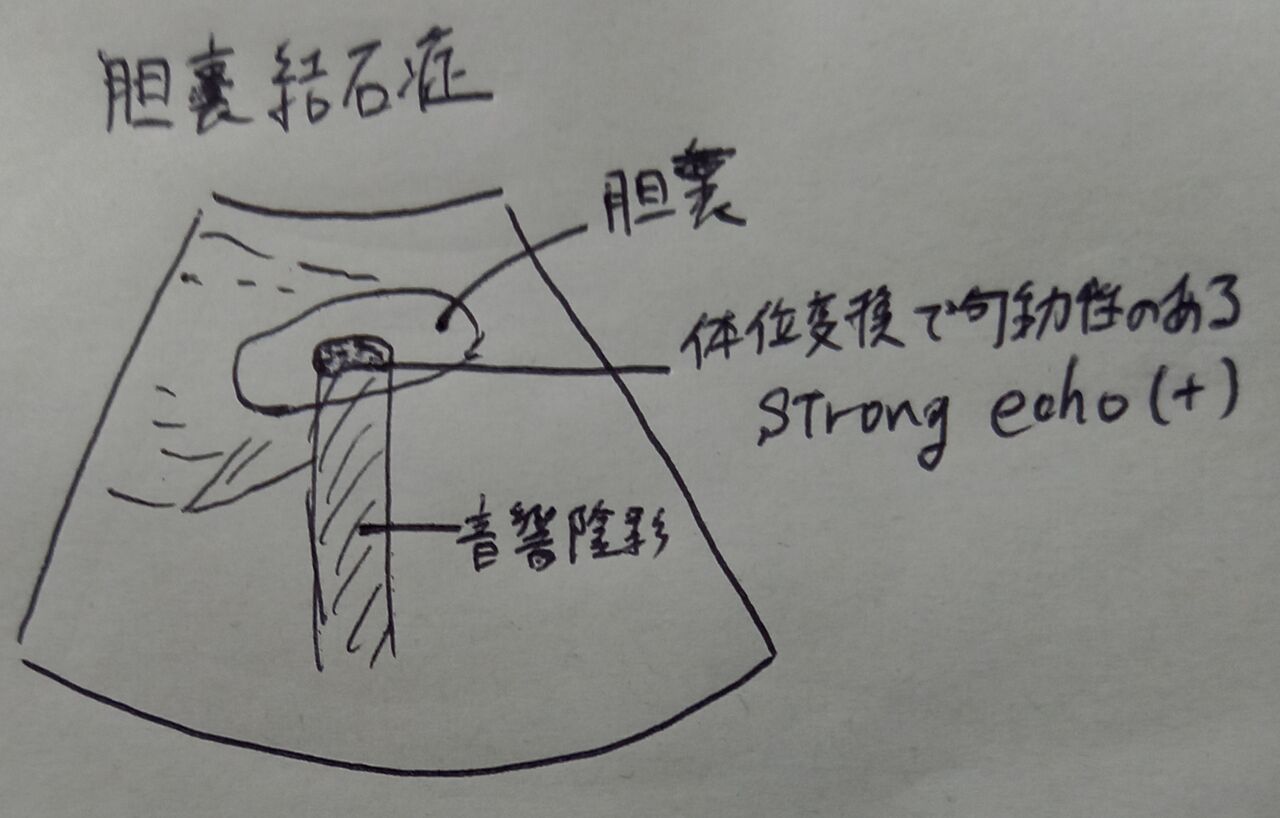 胆嚢結石症
胆嚢
体位変換で可動性のある
strong echo (+)
音響陰影